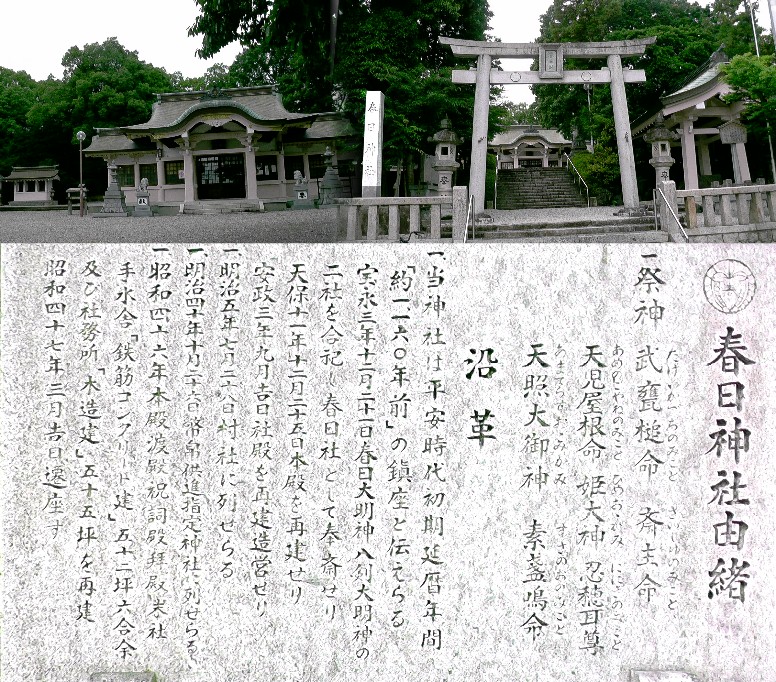 春日神社
春日神社由緒
一祭神 武甕槌命 斎主命
たけみかづちのみこと さいしゅのみこと
天児屋根命 姫大神 忍穂耳尊
あめのこやねのみこと ひめおおかみ
天照大御神 素盞鳴命
あまてらすおおみかみ すさのおのみこと
沿革
一当神社は平安時代初期延暦年間
「約一一六〇年前」の鎮座と伝えらる
宝永三年十二月二十一日春日大明神八剣大明神の
二社を合祀し春日社として奉斎せり
天保十一年十二月二十五日本殿を再建せり
安政三年九月吉日社殿を再建造営せり
一明治五年七月二十八日村社に列せらる
一明治四十年十月二十六日幣帛供進指定神社に列せらる
一昭和四十六年本殿渡殿祝詞殿拝殿末社
手水舎「鉄筋コンクリート建」五十二坪六合余
及び社務所「木造建」五十五坪を再建
昭和四十七年三月吉日遷座す